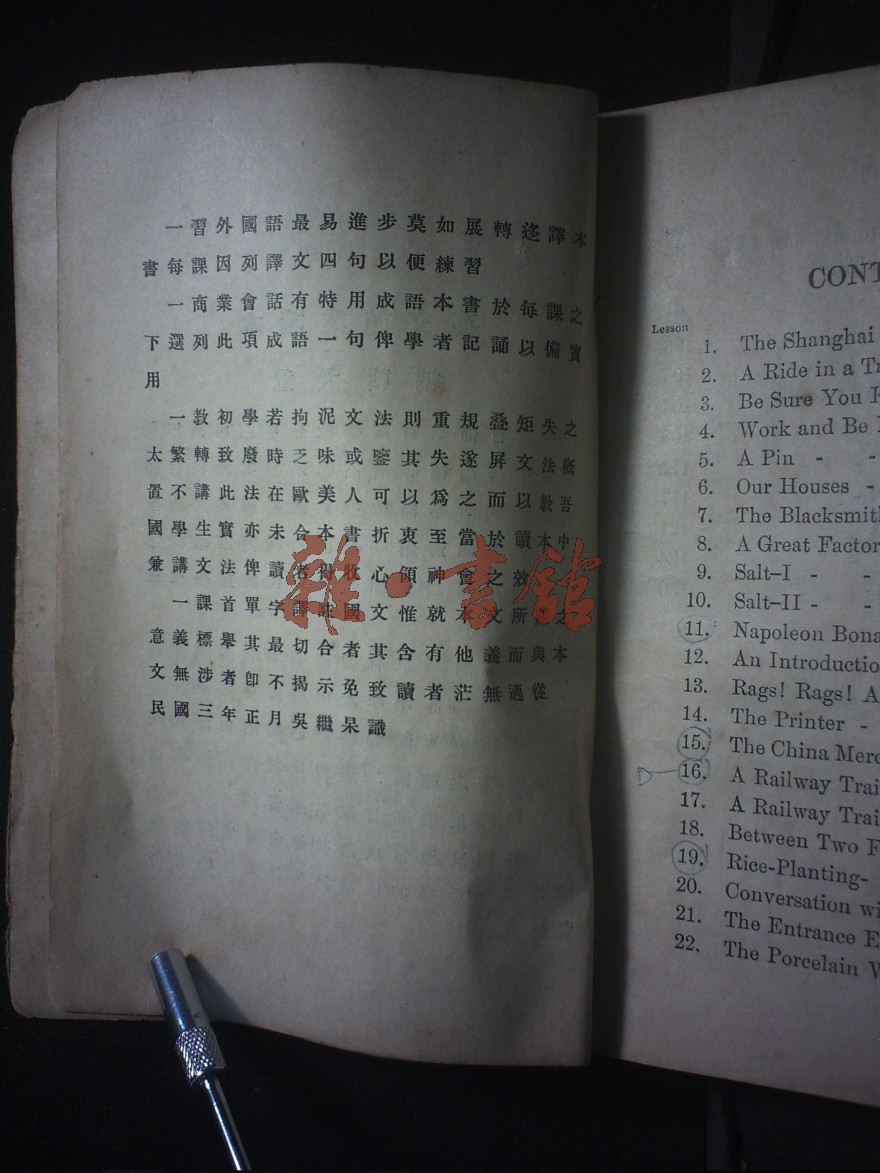 一習外國語最易進步莫如展轉迻譯本
書每課因列譯文四句以便練習
一商業會話有特用成語本書於每課之
下選列此項成語一句俾學者記誦以備實
用
一敎初學若拘泥文法則重規叠矩失之
太繁轉致廢時乏味或鑒其失遂屏文法概
置不講此法在歐美人可以爲之而以敎吾
國學生實亦未合本書折衷至當於讀本中
兼講文法俾讀者得收心領神會之效
一課首單字譯註國文惟就本文所
意義標舉其最切合者其含有他義而與本
文無涉者卽不揭示免致讀者茫無適從
民國三年正月吳繼杲識
雜·書館
CONT
Lesson
1. The Shanghai
2. A Ride in a Tr
3. Be Sure You
4. Work and Be
5. A Pin - -
6. Our Houses -
7. The Blacksmith
8. A Great Factor
9. Salt–I - -
10. Salt–II - -
11. Napoleon Bona
12. An Introductio
13. Rags! Rags! A
14. The Printer -
15. The China Merc
16. A Railway Trai
17. A Railway Trai
18. Between Two F
19. Rice-Planting-
20. Conversation wi
21. The Entrance E
22. The Porcelain W